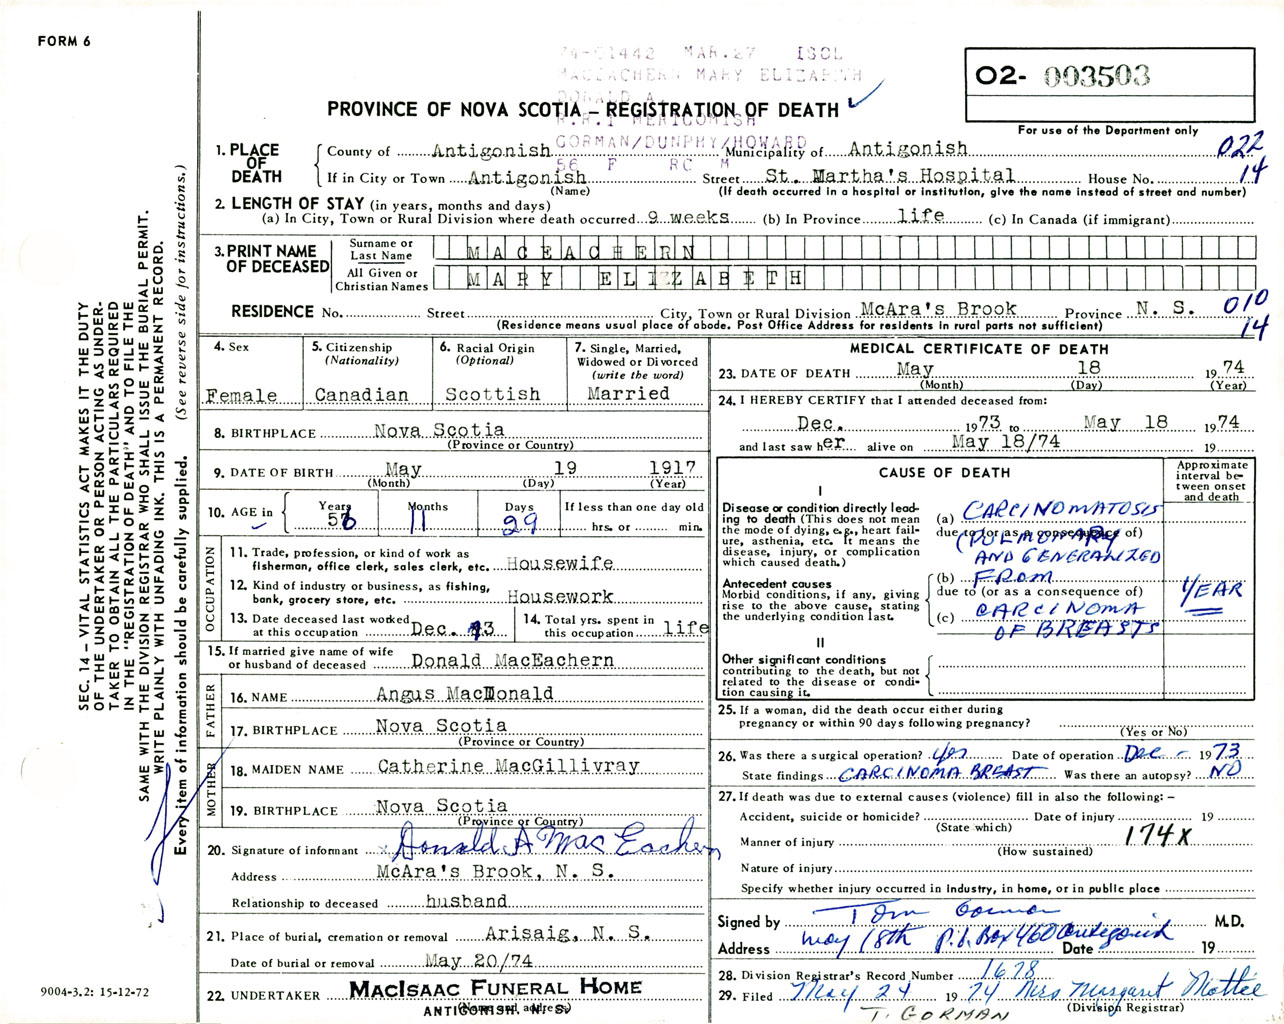 FORM 6
74-01442 MAR.27 ISOL
MACEACHERN MARY ELIZABETH
DONALD A
R.R.1 MERIGOMISH
GORMAN/DUNPHY/HOWARD
56 F RC M
02- 003503
For use of the Department only
PROVINCE OF NOVA SCOTIA – REGISTRATION OF DEATH
1. PLACE OF DEATH
County of Antigonish Municipality of Antigonish 022
If in City or Town Antigonish Street St. Martha's Hospital House No. 14
(Name) (If death occurred in a hospital or institution, give the name instead of street and number)
2. LENGTH OF STAY (in years, months and days)
(a) In City, Town or Rural Division where death occurred 9 weeks (b) In Province life (c) In Canada (if immigrant)
3. PRINT NAME OF DECEASED
Surname or Last Name MACEACHERN
All Given or Christian Names MARY ELIZABETH
RESIDENCE No. Street City, Town or Rural Division McAra's Brook Province N. S. 010
14
(Residence means usual place of abode. Post Office Address for residents in rural parts not sufficient)
4. Sex
Female
5. Citizenship
(Nationality)
Canadian
6. Racial Origin
(Optional)
Scottish
7. Single, Married,
Widowed or Divorced
(write the word)
Married
8. BIRTHPLACE Nova Scotia
(Province or Country)
9. DATE OF BIRTH May 19 1917
(Month) (Day) (Year)
10. AGE in Years Months Days If less than one day old
56 11 29 hrs. or min.
OCCUPATION
11. Trade, profession, or kind of work as
fisherman, office clerk, sales clerk, etc. Housewife
12. Kind of industry or business, as fishing,
bank, grocery store, etc. Housework
13. Date deceased last worked
at this occupation Dec. 73
14. Total yrs. spent in
this occupation life
15. If married give name of wife
or husband of deceased Donald MacEachern
FATHER
16. NAME Angus MacDonald
17. BIRTHPLACE Nova Scotia
(Province or Country)
MOTHER
18. MAIDEN NAME Catherine MacGillivray
19. BIRTHPLACE Nova Scotia
(Province or Country)
20. Signature of informant x Donald A MacEachern
Address McAra's Brook, N. S.
Relationship to deceased husband
21. Place of burial, cremation or removal Arisaig, N. S.
Date of burial or removal May 20/74
22. UNDERTAKER MACISAAC FUNERAL HOME
(Name and address)
ANTIGONISH, N. S.
MEDICAL CERTIFICATE OF DEATH
23. DATE OF DEATH May 18 1974
(Month) (Day) (Year)
24. I HEREBY CERTIFY that I attended deceased from:
Dec. 1973 to May 18 1974
and last saw her alive on May 18/74 19
CAUSE OF DEATH
Approximate interval between onset and death
I
Disease or condition directly lead-
ing to death (This does not mean
the mode of dying, e.g., heart fail-
ure, asthenia, etc. It means the
disease, injury, or complication
which caused death.)
(a) CARCINOMATOSIS
due to (or as a consequence of)
(PULMONARY
AND GENERALIZED
Antecedent causes
Morbid conditions, if any, giving
rise to the above cause, stating
the underlying condition last.
(b) FROM
due to (or as a consequence of)
(c) CARCINOMA
OF BREASTS
1 YEAR
II
Other significant conditions
contributing to the death, but not
related to the disease or condi-
tion causing it.
25. If a woman, did the death occur either during
pregnancy or within 90 days following pregnancy?
(Yes or No)
26. Was there a surgical operation? yes Date of operation Dec - 1973
State findings CARCINOMA BREAST Was there an autopsy? NO
27. If death was due to external causes (violence) fill in also the following: –
Accident, suicide or homicide? Date of injury 19
(State which)
Manner of injury 174X
(How sustained)
Nature of injury
Specify whether injury occurred in industry, in home, or in public place
Signed by Tom Gorman M.D.
Address May 18th P.O. Box 460 Antigonish Date 19
28. Division Registrar's Record Number 1678
29. Filed May 24 1974 Mrs Margaret
(Division Registrar)
T. GORMAN
SEC. 14 – VITAL STATISTICS ACT MAKES IT THE DUTY
OF THE UNDERTAKER OR PERSON ACTING AS UNDER-
TAKER TO OBTAIN ALL THE PARTICULARS REQUIRED
IN THE "REGISTRATION OF DEATH" AND TO FILE THE
SAME WITH THE DIVISION REGISTRAR WHO SHALL ISSUE THE BURIAL PERMIT.
WRITE PLAINLY WITH UNFADING INK. THIS IS A PERMANENT RECORD.
Every item of information should be carefully supplied. (See reverse side for instructions.)
9004-3.2: 15-12-72